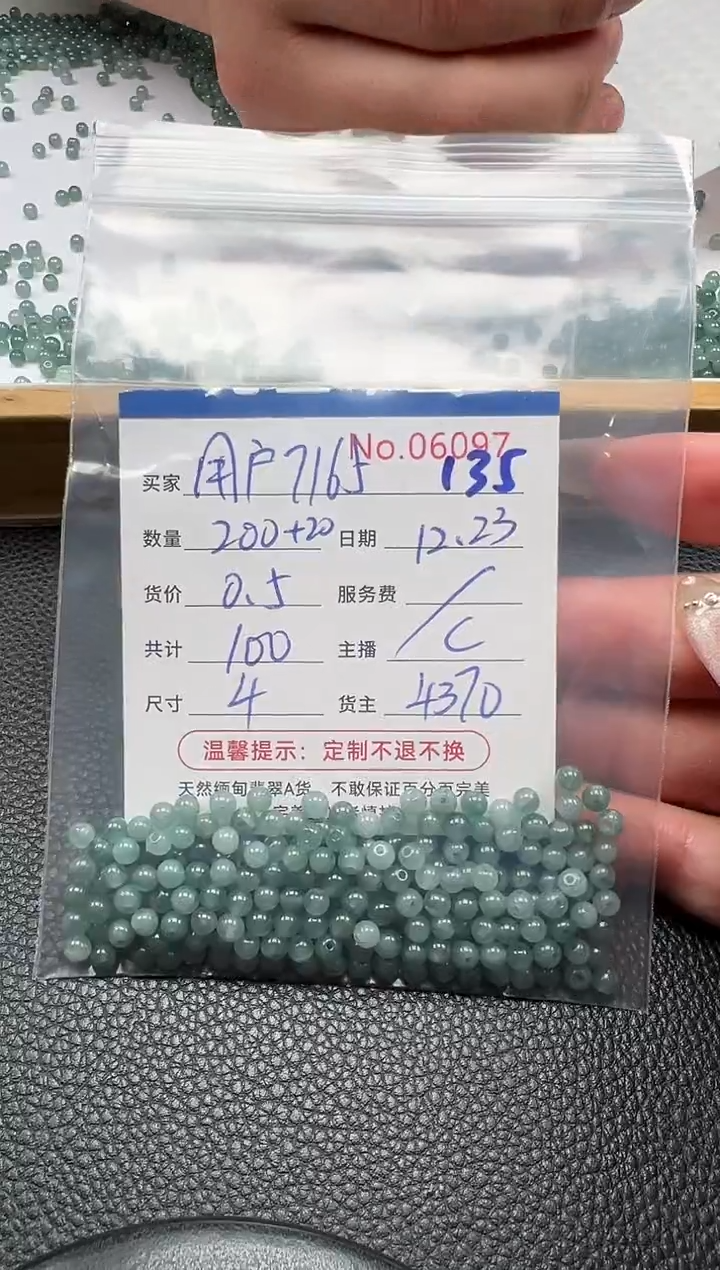 No.06097
买家 用户7165 135
数量 200+20 日期 12.23
货价 0.5 服务费 /
共计 100 主播 C
尺寸 4 货主 4370
温馨提示：定制不退不换
天然缅甸翡翠A货 不敢保证百分百完美